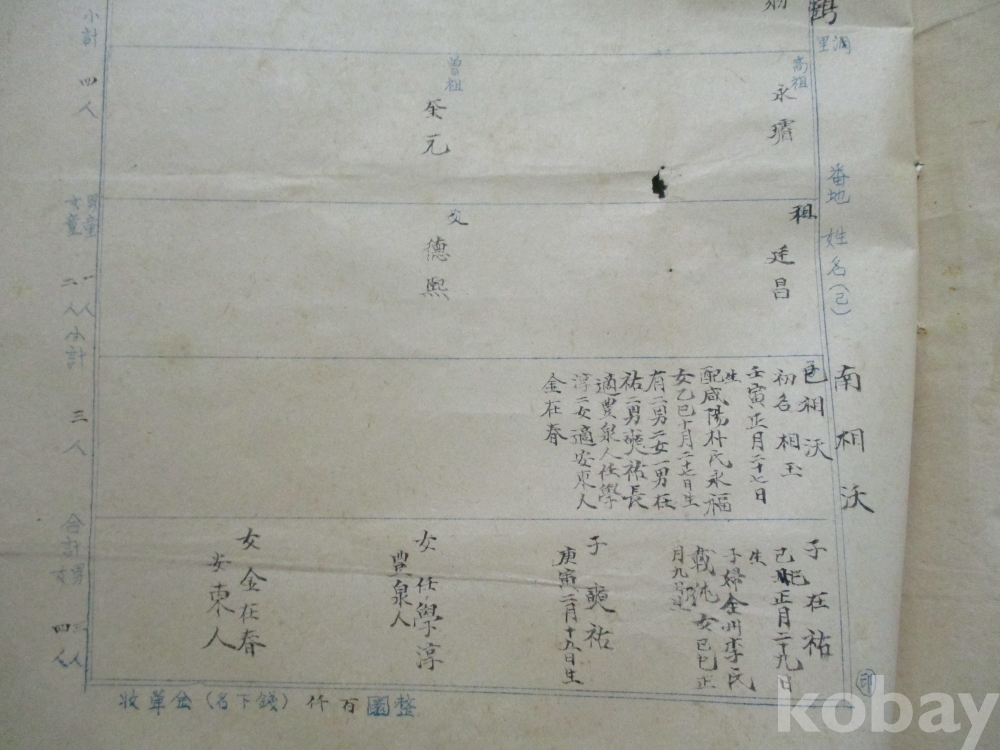 鶴
洞
里
番地 姓名(己)
南相沃
高祖
永琦
曾祖
癸元
祖
廷昌
父
德熙
己相沃
初名 相玉
壬寅正月二十七日
生
配咸陽朴氏永福
女乙巳十月二十七日生
有二男二女一男在
祐二男奭祐長
適豊泉人任學
淳二女適安東人
金在春
子在祐
己正月二十九日
生
子婦全州李氏
女己巳正
月九日
子奭祐
庚寅二月十九日生
女任學淳
豊泉人
女金在春
安東人
小計 四人
男童 一人
女童 二人
小計 三人
合計男 三人
女 四人
收單金(名下錢) 仟百圜整
印
kobay